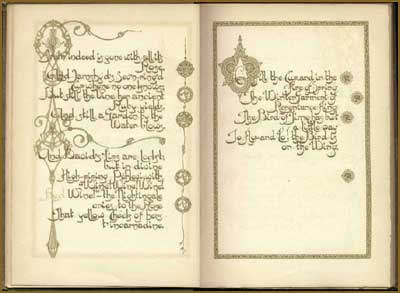 Iram indeed is gone with all its
Rose,
And Jamshyd's Sev'n-ring'd
Cup where no one knows
But still the Vine her ancient
Ruby yields
And still a Garden by the
Water blows.
And David's Lips are lock't;
but in divine
High-piping Pehlevi with
"Wine! Wine! Wine!
Red Wine!" the Nightingale
cries to the Rose
That yellow Cheek of hers
to incarnadine.
fill the Cup and in the
Fire of Spring
The Winter Garment of
Repentance fling
The Bird of Time has but
a little way
To fly and Lo! the Bird is
on the Wing